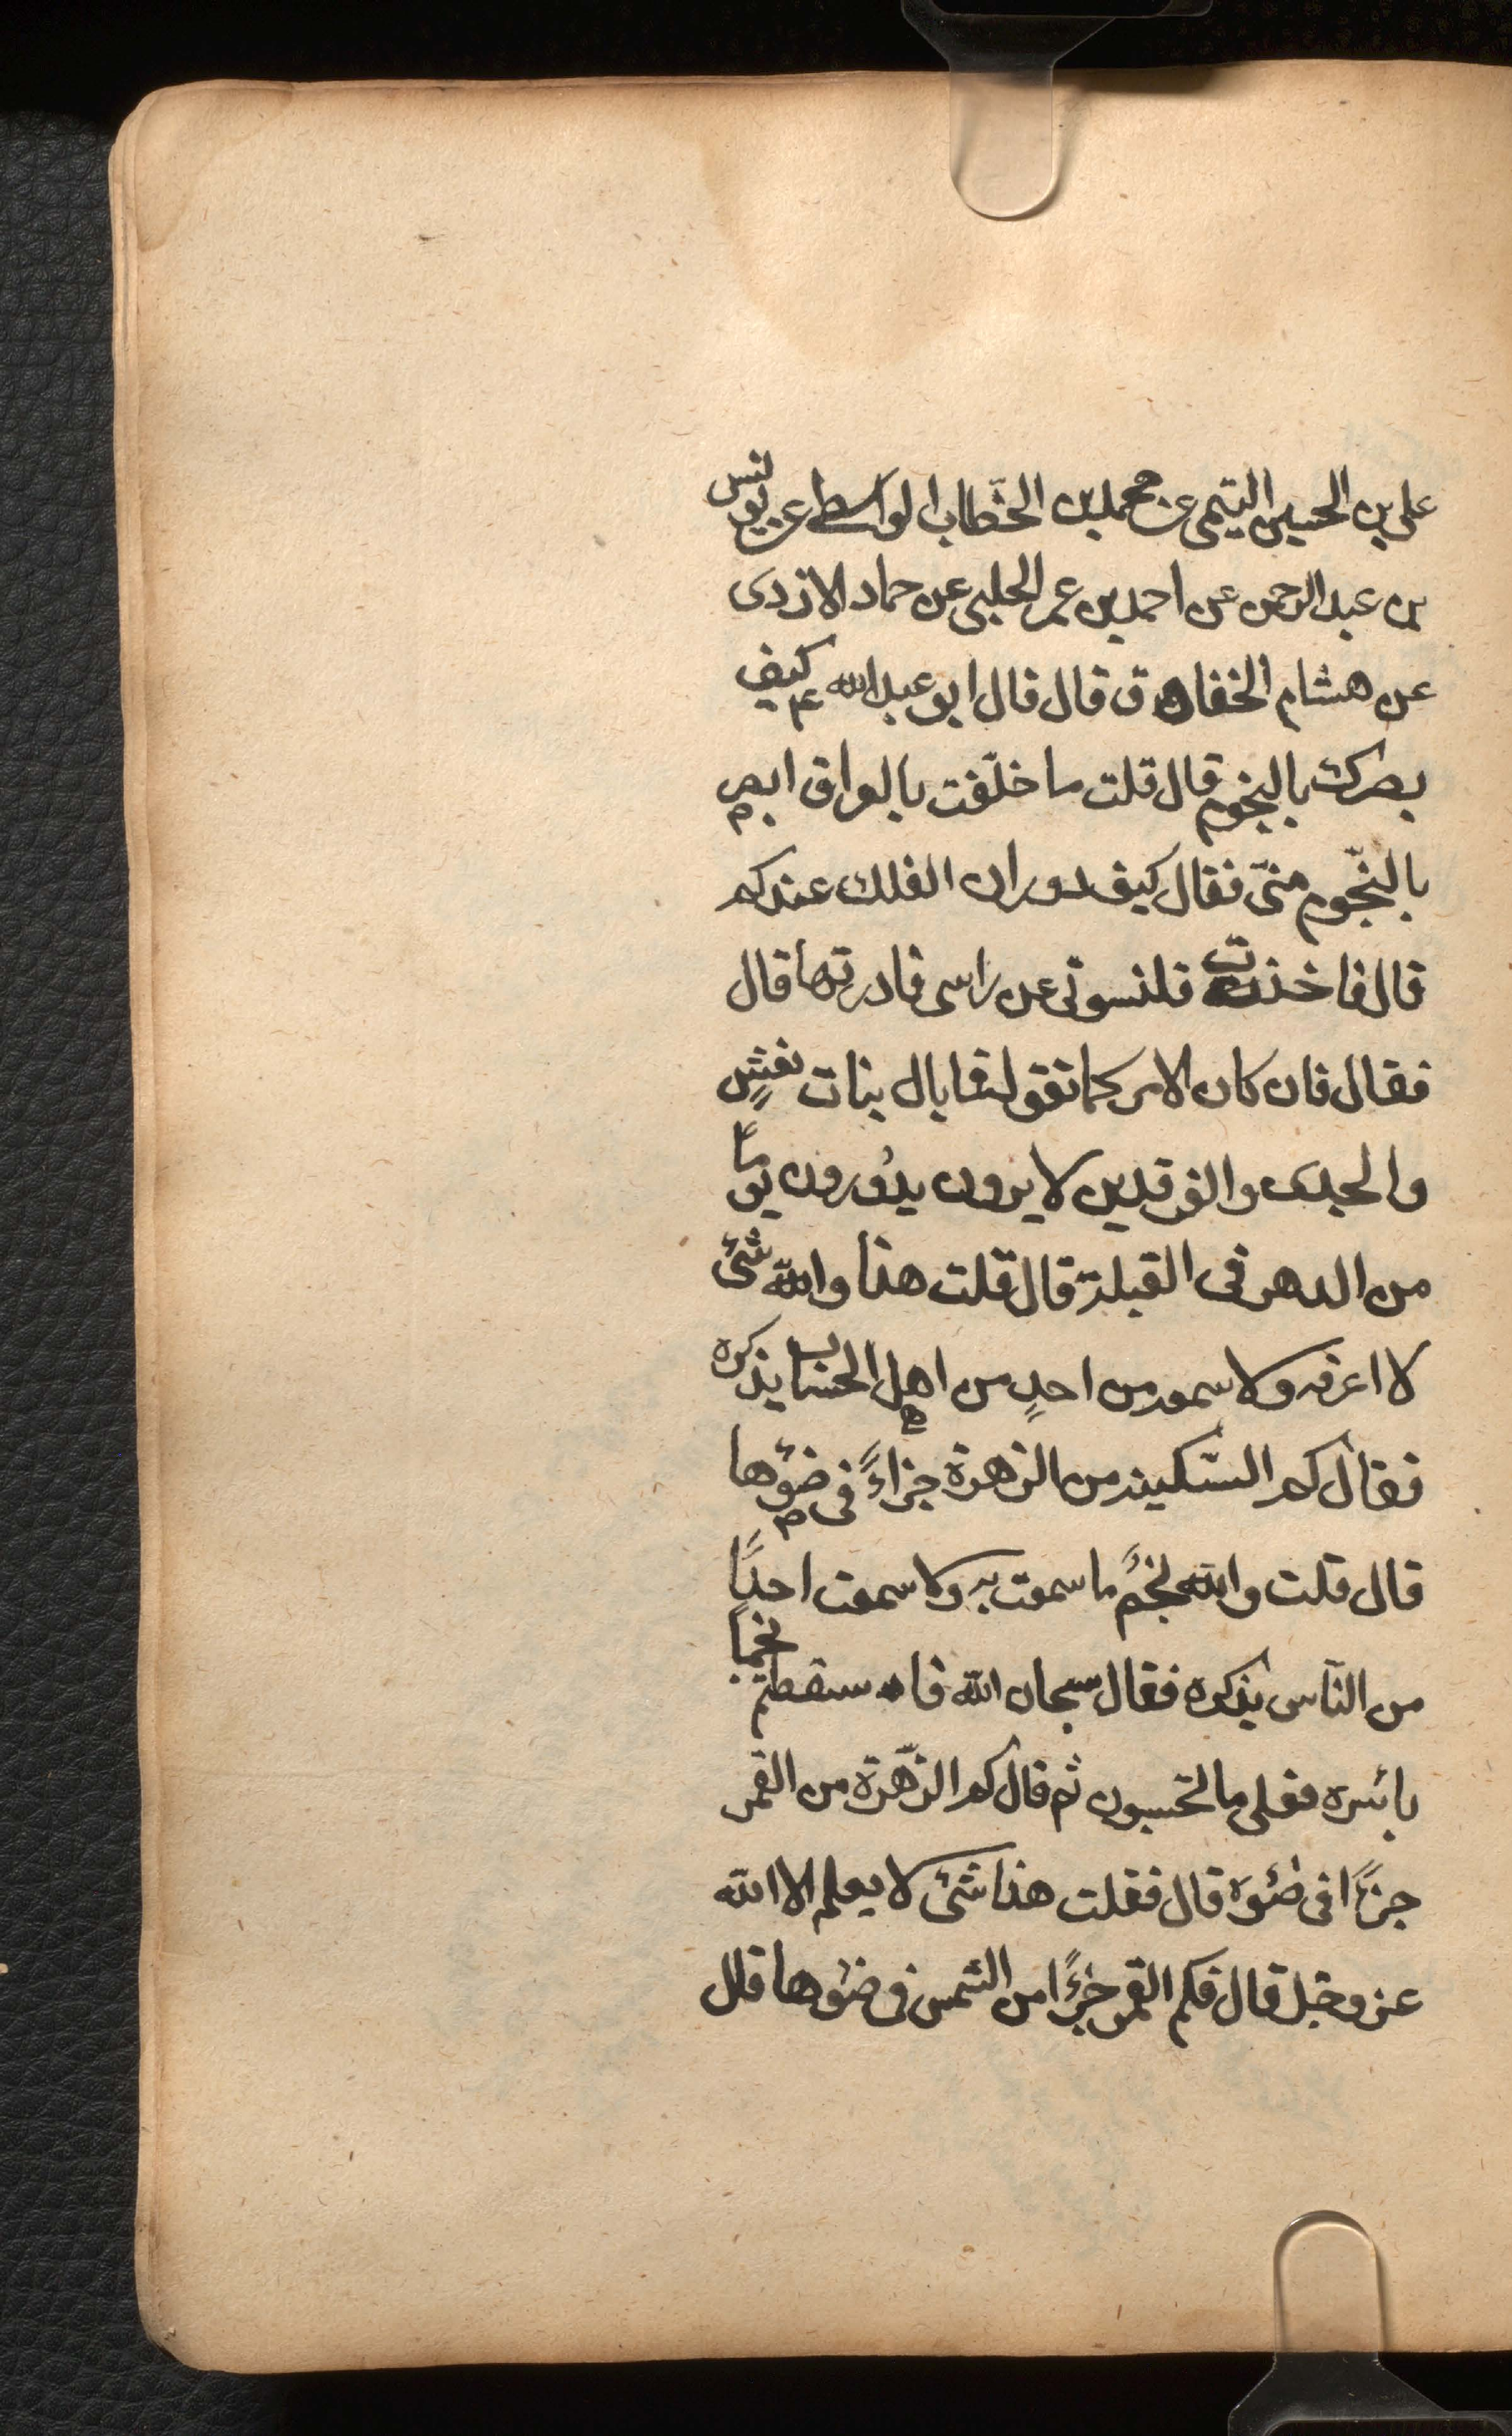 علي بن الحسين التيمى عن محمد بن الخطاب الواسطى عن يونس
بن عبد الرحمن عن احمد بن عمر الحلبى عن حماد الازدى
عن هشام الخفاف قال قال ابو عبد الله ع كيف
بصرك بالنجوم قال قلت ما خلّفت بالعراق ابصر
بالنّجوم منّى فقال كيف دوران الفلك عندكم
قال فاخذت قلنسوتى عن راسى فادرتها قال
فقال فان كان الامر كما تقول فما بال بنات نعشٍ
والجدى والفرقدين لا يرون يدُورون يومًا
من الدهر فى القبلة قال قلت هذا والله شئ
لا اعرفه ولا سمعت من احدٍ من اهل الحساب يذكره
فقال كم السّكينة من الزهرة جزاءً فى ضوئها
قال قلت والله نجمٌ ما سمعت به ولا سمعت احدًا
من النّاس يذكره فقال سبحان الله فاسقطتم نجمًا
باسره فعلى ما تحسبون ثم قال كم الزّهرة من القمر
جزءًا فى ضوءه قال فقلت هذا شئ لا يعلم الا الله
عز وجل قال فكم القمر جزءًا من الشمس فى ضوءها قال